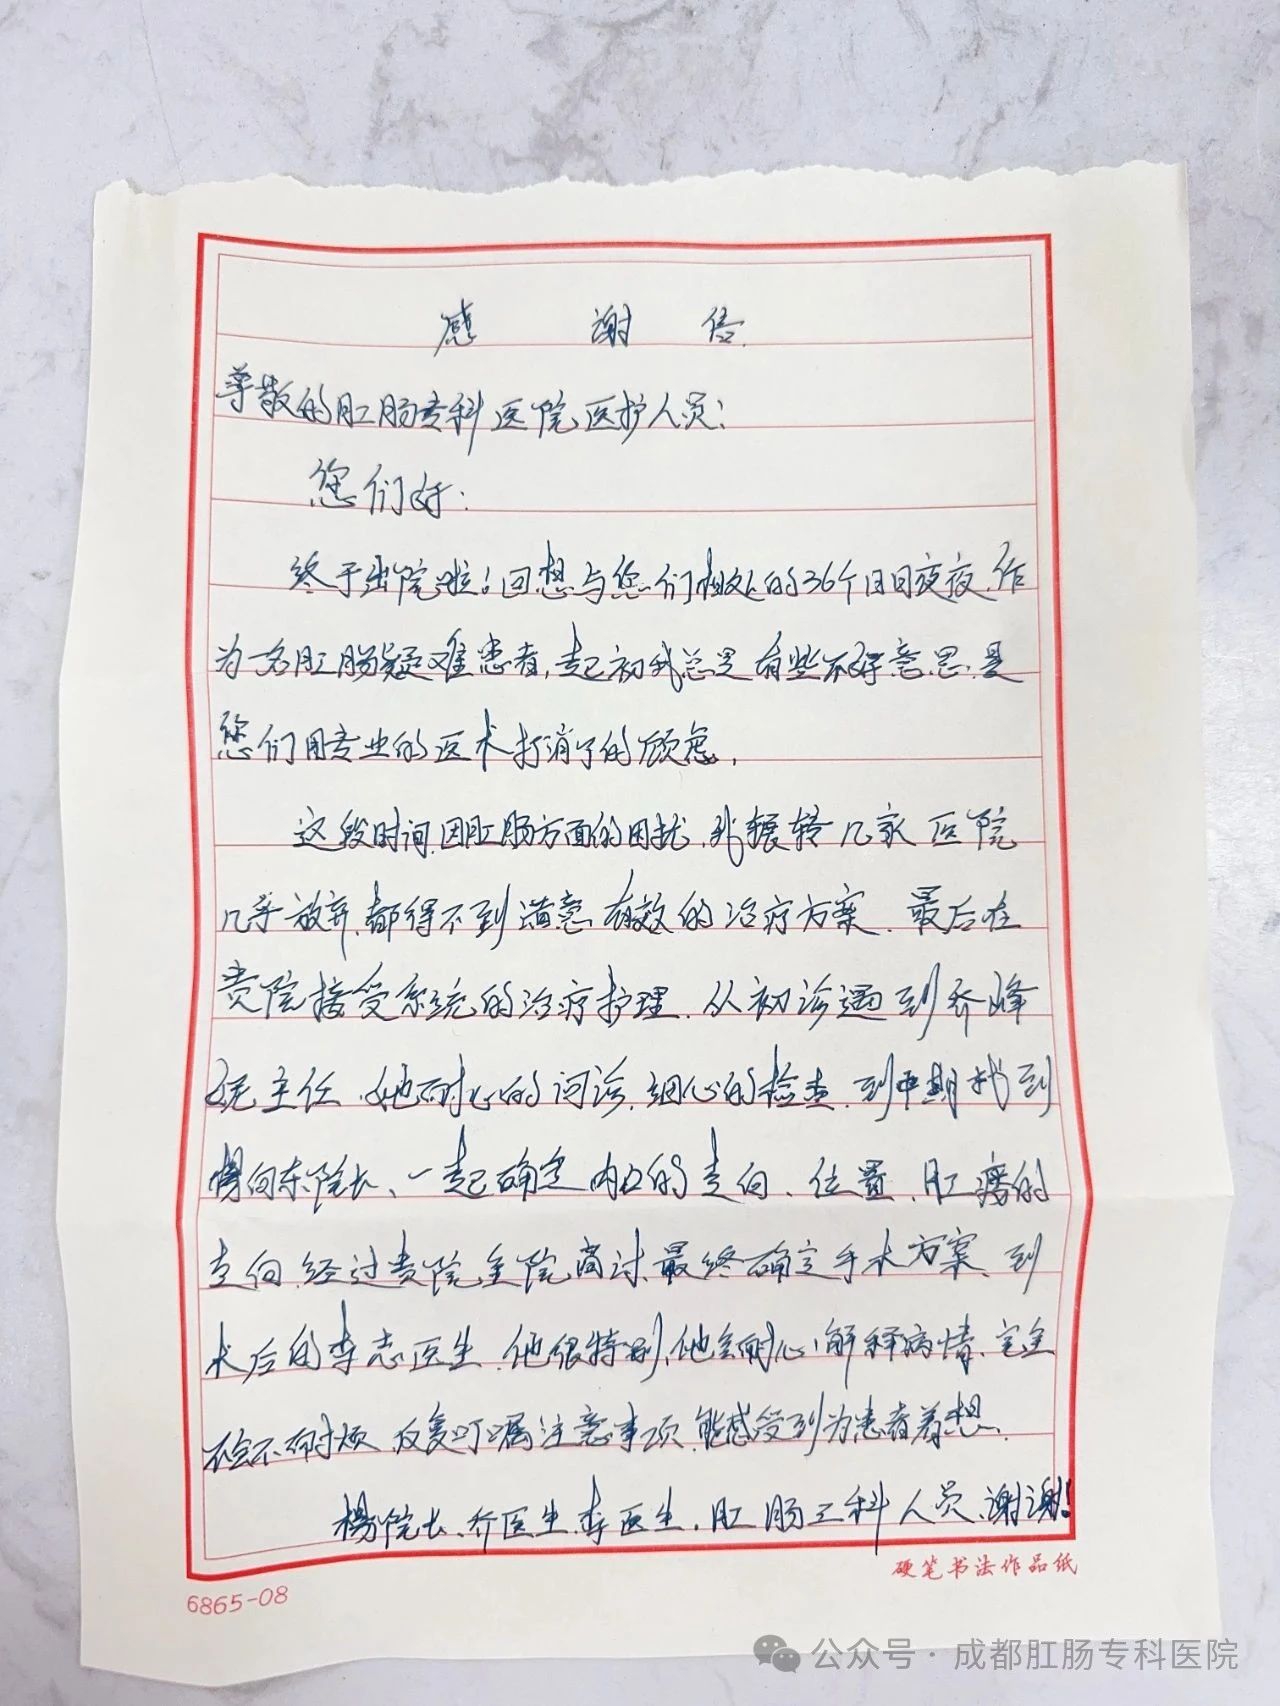 感谢信
尊敬的肛肠专科医院医护人员:
您们好:
终于出院啦!回想与您们相处的36个日日夜夜,作
为一名肛肠疑难患者,起初我总是有些不好意思,是
您们用专业的医术打消了的顾虑。
这段时间,因肛肠方面的困扰,我辗转几家医院
几乎放弃,都得不到满意有效的治疗方案,最后在
贵院接受系统的治疗护理,从初诊遇到乔峰
主任,她耐心的问诊,细心的检查,到中期找到
杨向东院长、一起确定内口的走向、位置,肛瘘的
走向,经过贵院全院商讨,最终确定手术方案,到
术后的李志医生,他很特别,他会耐心解释病情,完全
不会不耐烦,反复叮嘱注意事项,能感受到为患者着想。
杨院长、乔医生,李医生,肛肠三科人员,谢谢!
硬笔书法作品纸
6865-08
公众号·成都肛肠专科医院